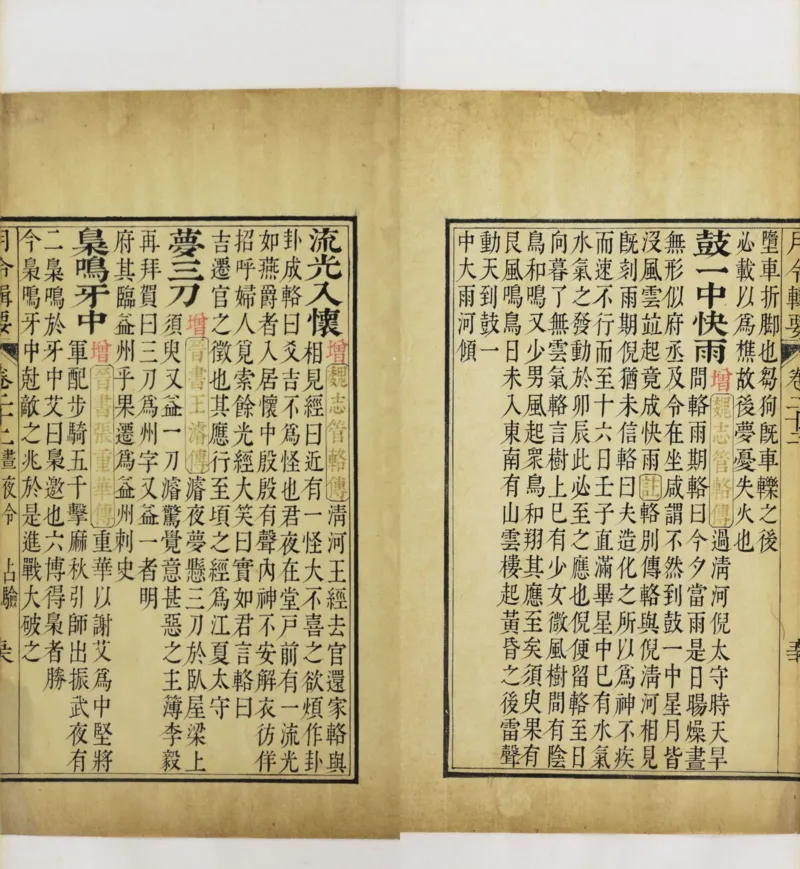 月令輯要
墮車折脚也芻狗既車轢之後
必載以為樵故後夢憂失火也
鼓一中快雨 增 魏志管輅傳 過清河倪太守時天旱
問輅雨期輅曰今夕當雨是日暘燥晝
無形似府丞及令在坐咸謂不然到鼓一中星月皆
沒風雲竝起竟成快雨 註 輅別傳輅與倪清河相見
既刻雨期倪猶未信輅曰夫造化之所以為神不疾
而速不行而至十六日壬子直滿畢星中巳有水氣
水氣之發動於卯辰此必至之應也倪便留輅至日
向暮了無雲氣輅言樹上巳有少女微風樹間有陰
鳥和鳴又少男風起眾鳥和翔其應至矣須臾果有
艮風鳴鳥日未入東南有山雲樓起黃昏之後雷聲
動天到鼓一
中大雨河傾
流光入懷 增 魏志管輅傳 清河王經去官還家輅與
相見經曰近有一怪大不喜之欲煩作卦
卦成輅曰爻吉不為怪也君夜在堂戶前有一流光
如燕爵者入居懷中殷殷有聲內神不安解衣彷徉
招呼婦人覓索餘光經大笑曰實如君言輅曰
吉遷官之徵也其應行至頃之經為江夏太守
夢三刀 增 晉書王濬傳 濬夜夢懸三刀於臥屋梁上
須臾又益一刀濬驚覺意甚惡之主簿李毅
再拜賀曰三刀為州字又益一者明
府其臨益州乎果遷為益州刺史
梟鳴牙中 增 晉書張重華傳 重華以謝艾為中堅將
軍配步騎五千擊麻秋引師出振武夜有
二梟鳴於牙中艾曰梟邀也六博得梟者勝
今梟鳴牙中尅敵之兆於是進戰大破之
月令輯要 晝夜令 占驗